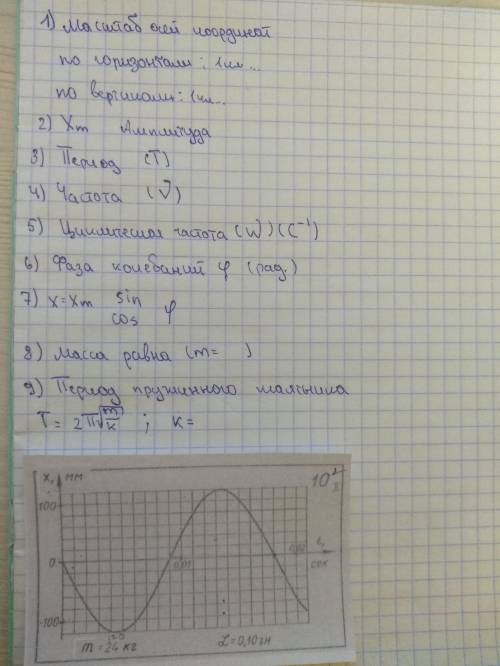 1) Масштаб осей координат
по горизонтали: 1 кл...
по вертикали: 1 кл...
2) Xm Амплитуда
3) Период (T)
4) Частота (ν)
5) Циклическая частота (W) (C⁻¹)
6) Фаза колебаний φ (рад.)
7) x = xm sin
cos φ
8) Масса равна (m= )
9) Период пружинного маятника
T = 2π√m/k ; k=
x, мм
100
t,
0
0,01
сек
-100
m = 24 кг
L = 0,10 гн